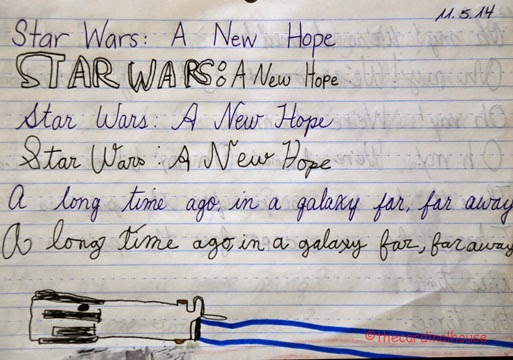 11.5.14
Star Wars: A New Hope
STAR WARS: A New Hope
Star Wars: A New Hope
Star Wars: A New Hope
A long time ago, in a galaxy far, far away
A long time ago, in a galaxy far, far away
©thecardinalhouse